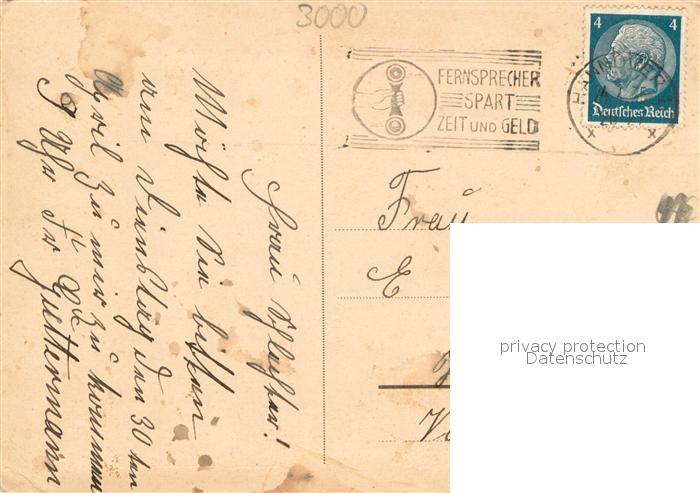 3000
FERNSPRECHER
SPART
ZEIT UND GELD
4 4
Deutsches Reich
HANNOVER
Frau
E
privacy protection
Datenschutz
Frau Schlüter!
Möchte Sie bitten
am Dienstag den 30 ten
April zu mir zu kommen
Uhr Fr Guttermann